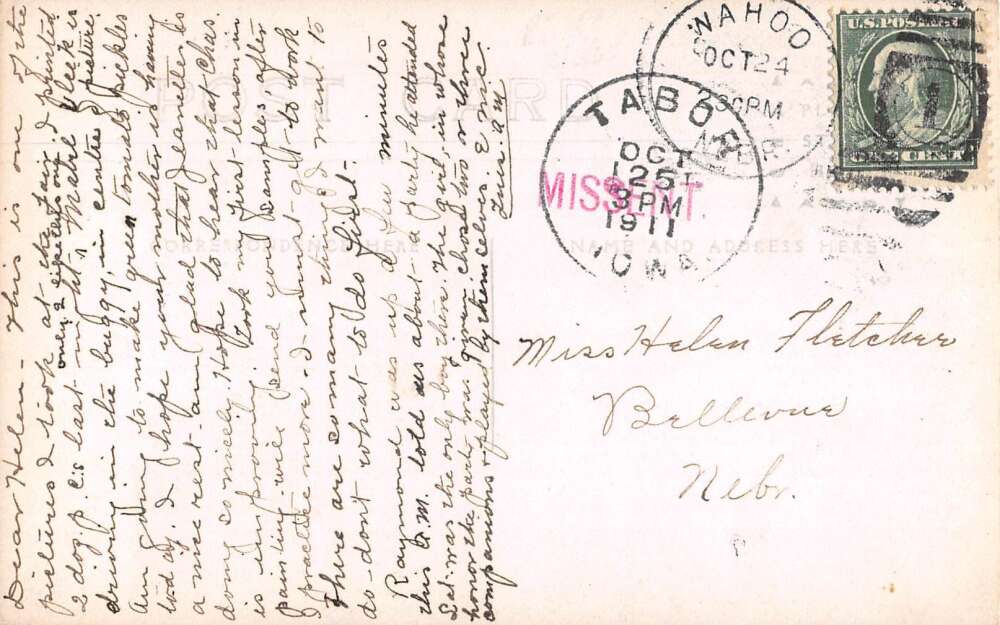 Dear Helen - This is one of the
pictures I took at state fair. I printed
2 doz. P. C.'s last night. Mabel Fleek is
only 2 aspects of
driving in the buggy, in centre of picture.
Am going to make green tomato pickles
today. I hope your mother is having
a nice rest - am glad that Jeanette is
doing so nicely. Hope to hear that Chas.
is improving. Took my first lesson in
painting will send you samples after
I practice more. I must get to work
There are so many things I want to
do - don't what to do first.
Raymond was up a few minutes
this A.M. told us about a party he attended
Sat. was the only boy there. The girl in whose
honor the party was given chose two or three
companions & played by themselves. E. M. C.
Tues. A. M.
POST CARD
CORRESPONDENCE HERE
NAME AND ADDRESS HERE
WAHOO
OCT 24
30 PM
NEBR.
TABOR
OCT
25
3 PM
1911
IOWA
MISSENT
U.S. POSTAGE
CENT
Miss Helen Fletcher
Bellevue
Nebr.